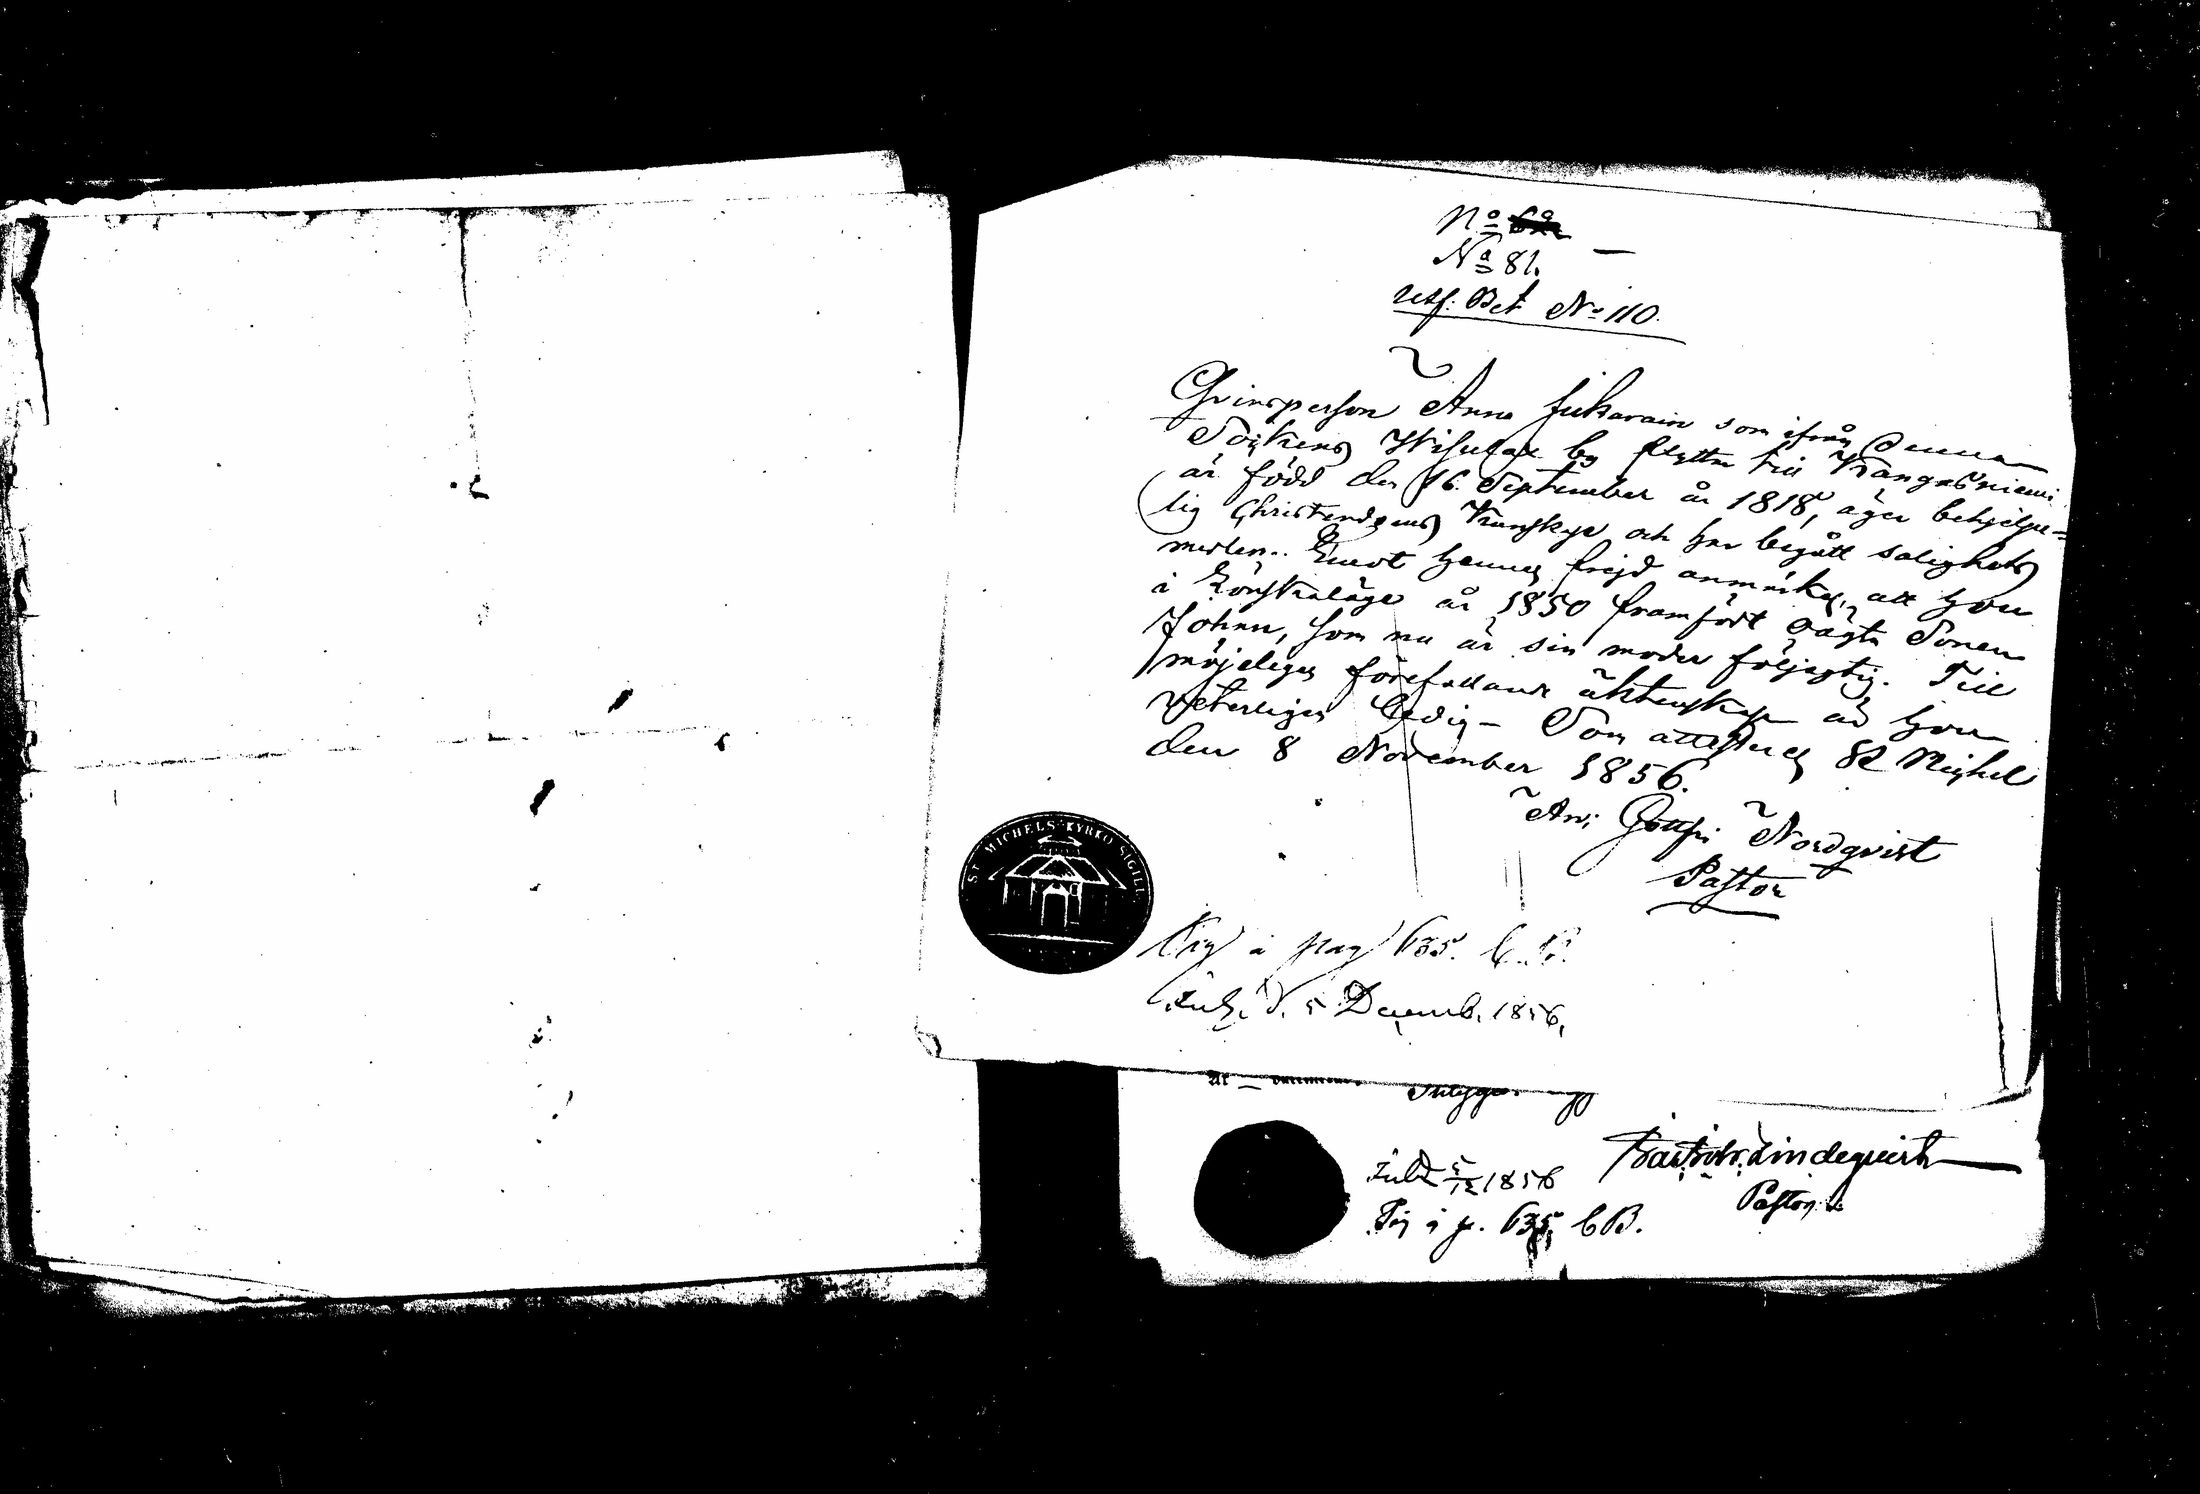 No
No 81.
utf: Bet No 110.
Qvinsperson Anna som ifrån denna
Sockens by flyttar till Kangasniemi
är född den 16 September år 1818, äger behjelpe-
lig Christendoms kunskap och har begått salighets
medlen. Emot hennes frejd anmärkes, att hon
i Lönskaläge år 1850 framfört oägta Sonen
Johan, som nu är sin moder följagtig. Till
möjeligen förefallande äktenskap är hon
veterligen ledig – Som attesteras St Michel
den 8 November 1856.
Nordqvist
Pastor
ST. MICHELS KYRKO SIGILL
å pag 635. C.B.
d. 5 Decemb. 1856.
5/12 1856
Lindequist
Pastor
å p. 635 CB.